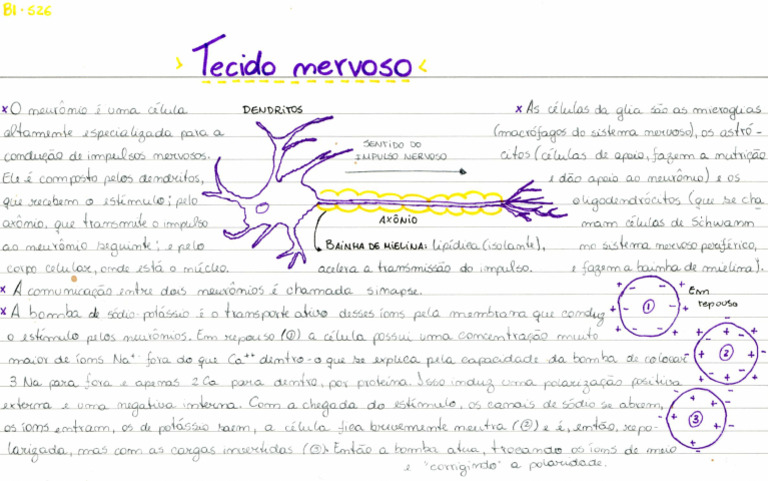 BI-S26
Tecido nervoso
x O neurônio é uma célula
altamente especializada para a
condução de impulsos nervosos.
Ele é composto pelos dendritos,
que recebem o estímulo; pelo
axônio, que transmite o impulso
ao neurônio seguinte; e pelo
corpo celular, onde está o núcleo.
DENDRITOS
SENTIDO DO
IMPULSO NERVOSO
AXÔNIO
BAINHA DE MIELINA: lipídica (isolante),
acelera a transmissão do impulso.
x As células da glia são as microglias
(macrófagos do sistema nervoso), os astró-
citos (células de apoio, fazem a nutrição
e dão apoio ao neurônio) e os
oligodendrócitos (que se cha
mam células de Schwann
no sistema nervoso periférico,
e fazem a bainha de mielina).
x A comunicação entre dois neurônios é chamada sinapse.
x A bomba de sódio-potássio é o transporte ativo desses íons pela membrana que conduz
o estímulo pelos neurônios. Em repouso (①) a célula possui uma concentração muito
maior de íons Na⁺ fora do que Ca⁺⁺ dentro - o que se explica pela capacidade da bomba de colocar
3 Na para fora e apenas 2 Ca para dentro, por proteína. Isso induz uma polarização positiva
externa e uma negativa interna. Com a chegada do estímulo, os canais de sódio se abrem,
os íons entram, os de potássio saem, a célula fica brevemente neutra (②) e é, então, repo-
larizada, mas com as cargas invertidas (③). Então a bomba atua, trocando os íons de meio
e "corrigindo" a polaridade.
Em
repouso
①
②
③